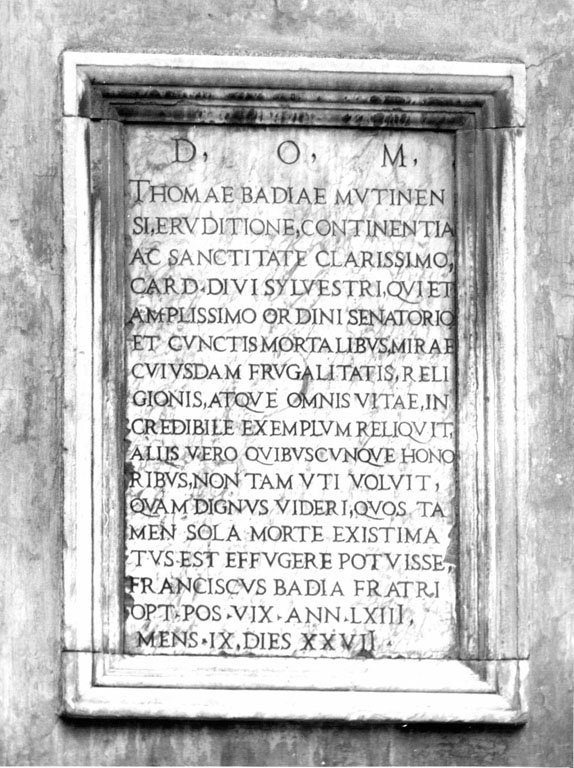 D, O, M,
THOMAE BADIAE MVTINEN
SI, ERVDITIONE, CONTINENTIA
AC SANCTITATE CLARISSIMO,
CARD·DIVI SYLVESTRI, QVI ET
AMPLISSIMO ORDINI SENATORIO
ET CVNCTIS MORTALIBVS, MIRAE
CVIVSDAM FRVGALITATIS, RELI
GIONIS, ATQVE OMNIS VITAE, IN
CREDIBILE EXEMPLVM RELIQVIT,
ALIIS VERO QVIBVSCVNQVE HONO
RIBVS, NON TAM VTI VOLVIT,
QVAM DIGNVS VIDERI, QVOS TA
MEN SOLA MORTE EXISTIMA
TVS·EST EFFVGERE POTVISSE,
FRANCISCVS BADIA FRATRI
OPT·POS·VIX·ANN·LXIII,
MENS·IX, DIES XXVII·